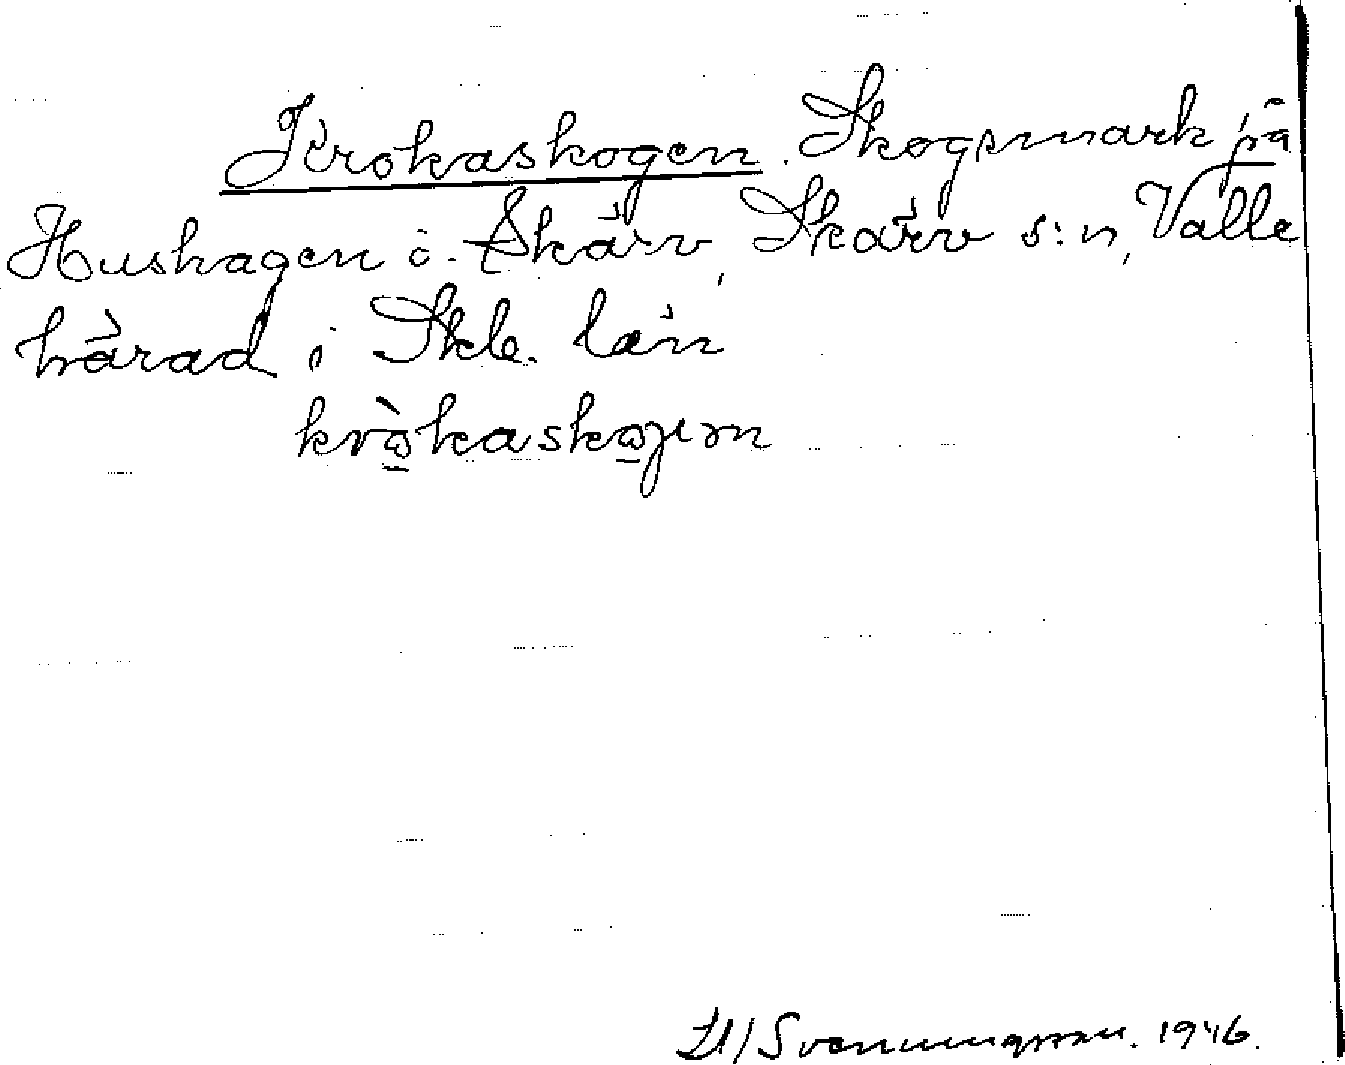 Krokaskogen. Skogsmark på
Hushagen i Skärv, Skärv s:n, Valle
härad i Skb. län
Svenningsson. 1946.